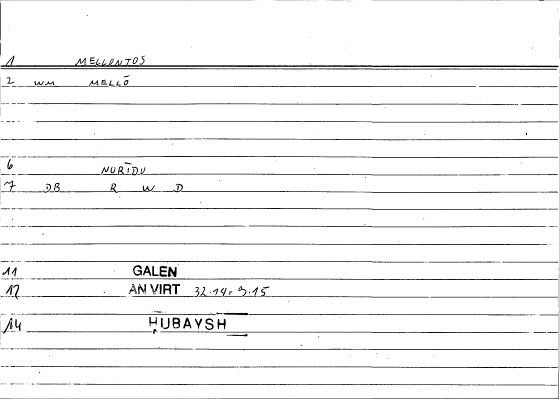 1 MELLONTOS
2 WM MELLŌ
6 NURĪDU
7 DB R W D
11 GALEN
12 AN VIRT 32.14, 9.15
14 HUBAYSH